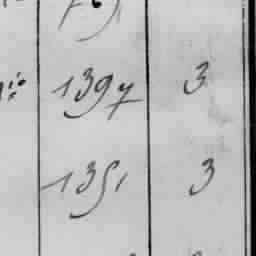 1397 3
1351 3